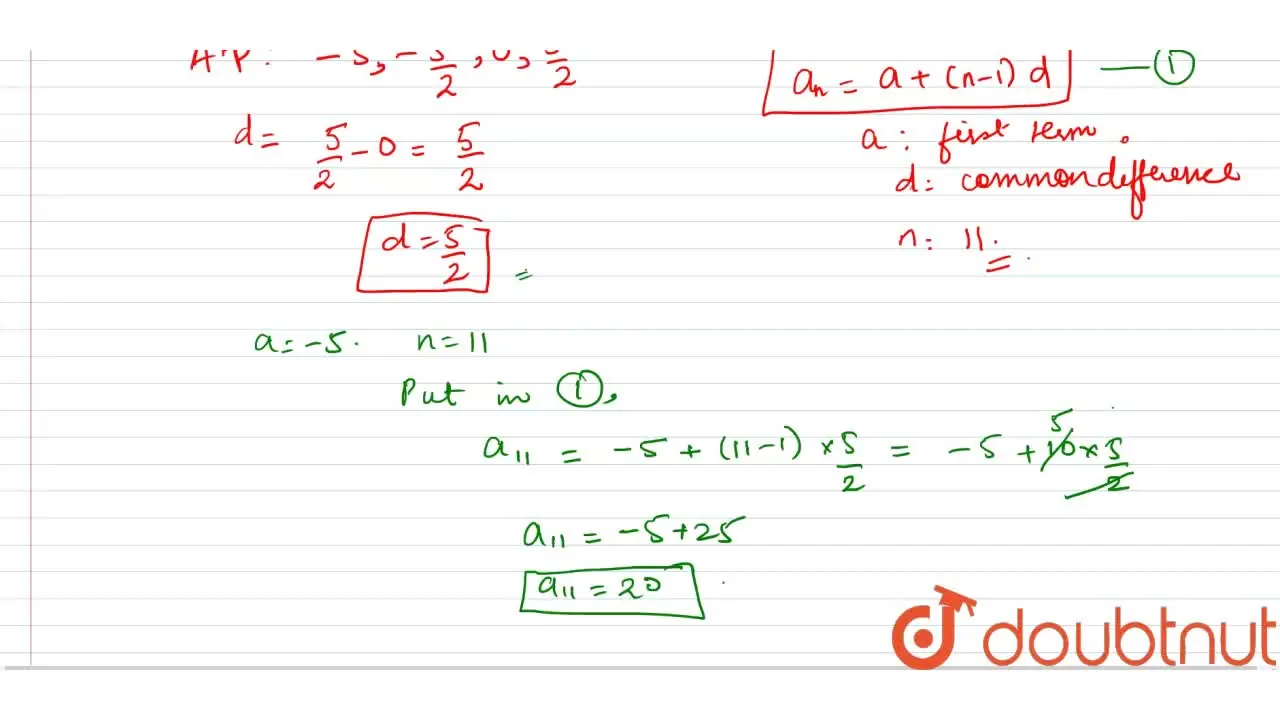 A.P: -5, -5/2, 0, 5/2
aₙ = a + (n-1) d — ①
d = 5/2 - 0 = 5/2
a: first term.
d: common difference
n: 11.
d = 5/2
a = -5. n = 11
Put in ①,
a₁₁ = -5 + (11-1) × 5/2 = -5 + 10 × 5/2
5
a₁₁ = -5+25
a₁₁ = 20
doubtnut